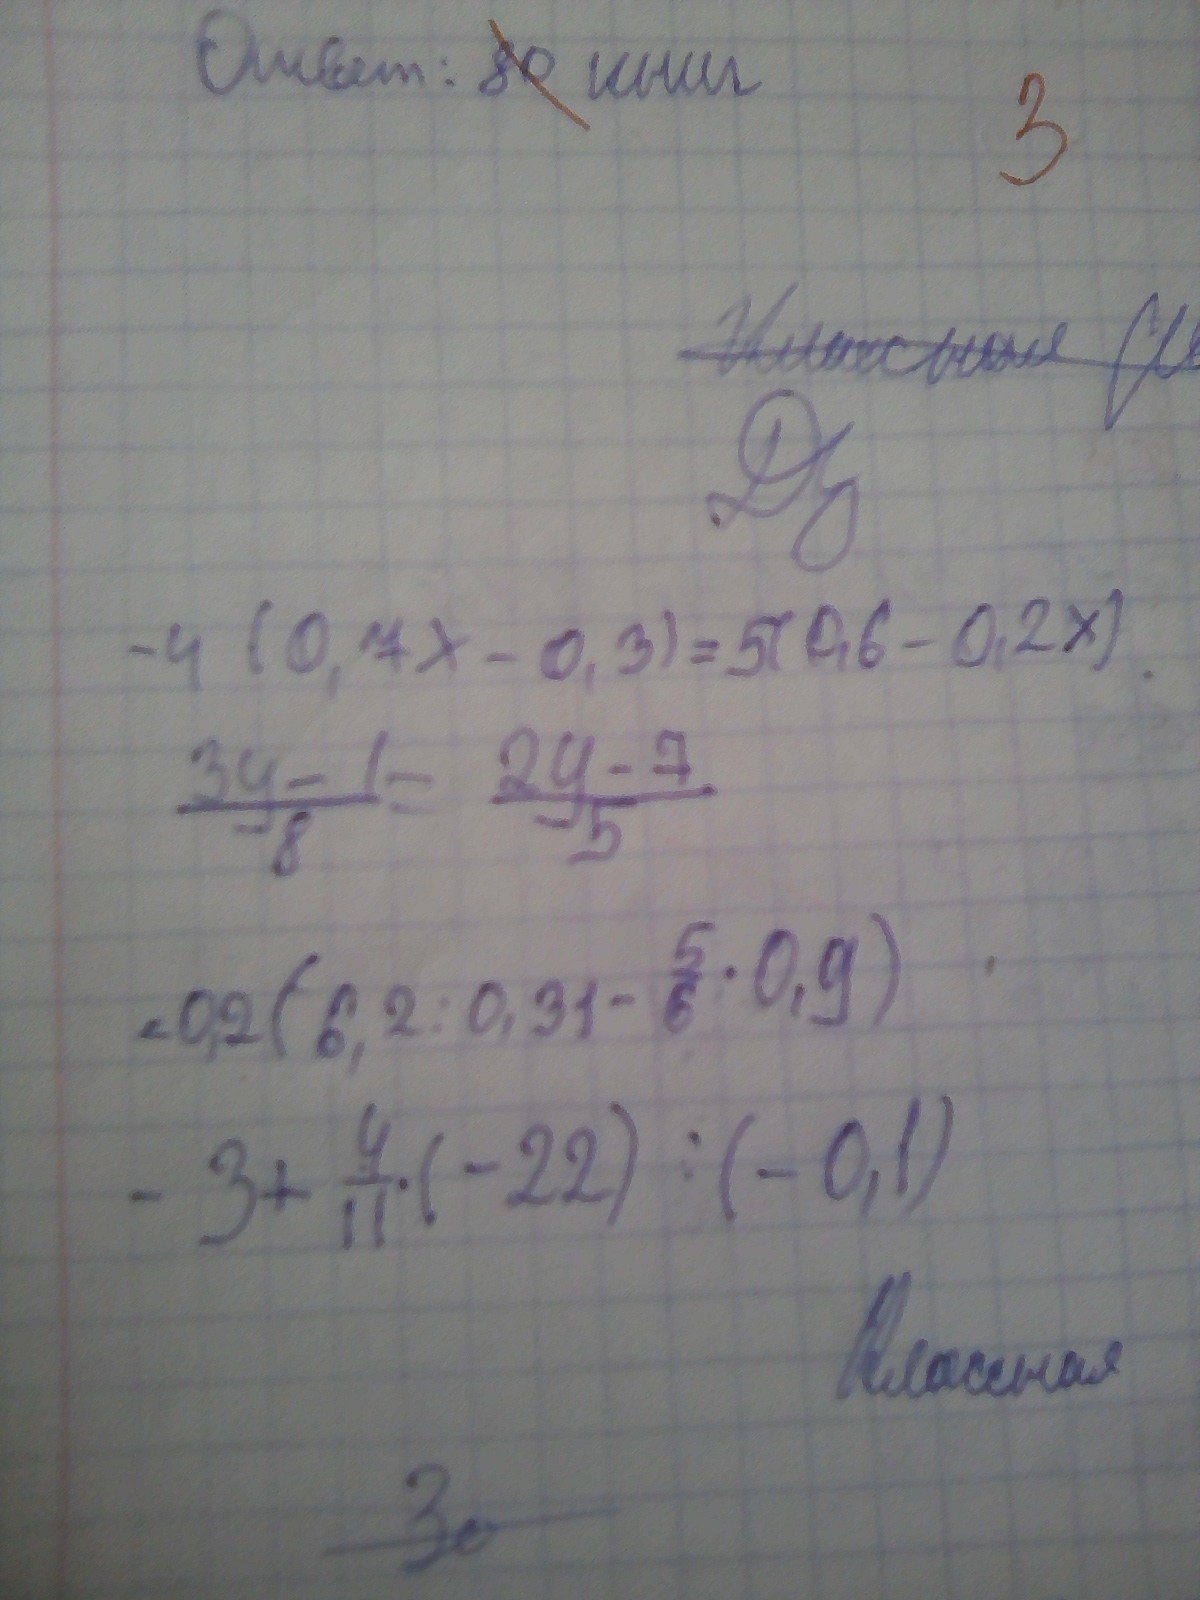 Ответ: 80 книг
3
Классная
Дз
-4 (0,7x - 0,3) = 5(0,6 - 0,2x)
3y - 1 / 8 = 2y - 7 / 5
-0,2(6,2 : 0,31 - 5/6 · 0,9)
- 3 + 4/11 · (-22) : (-0,1)
Классная